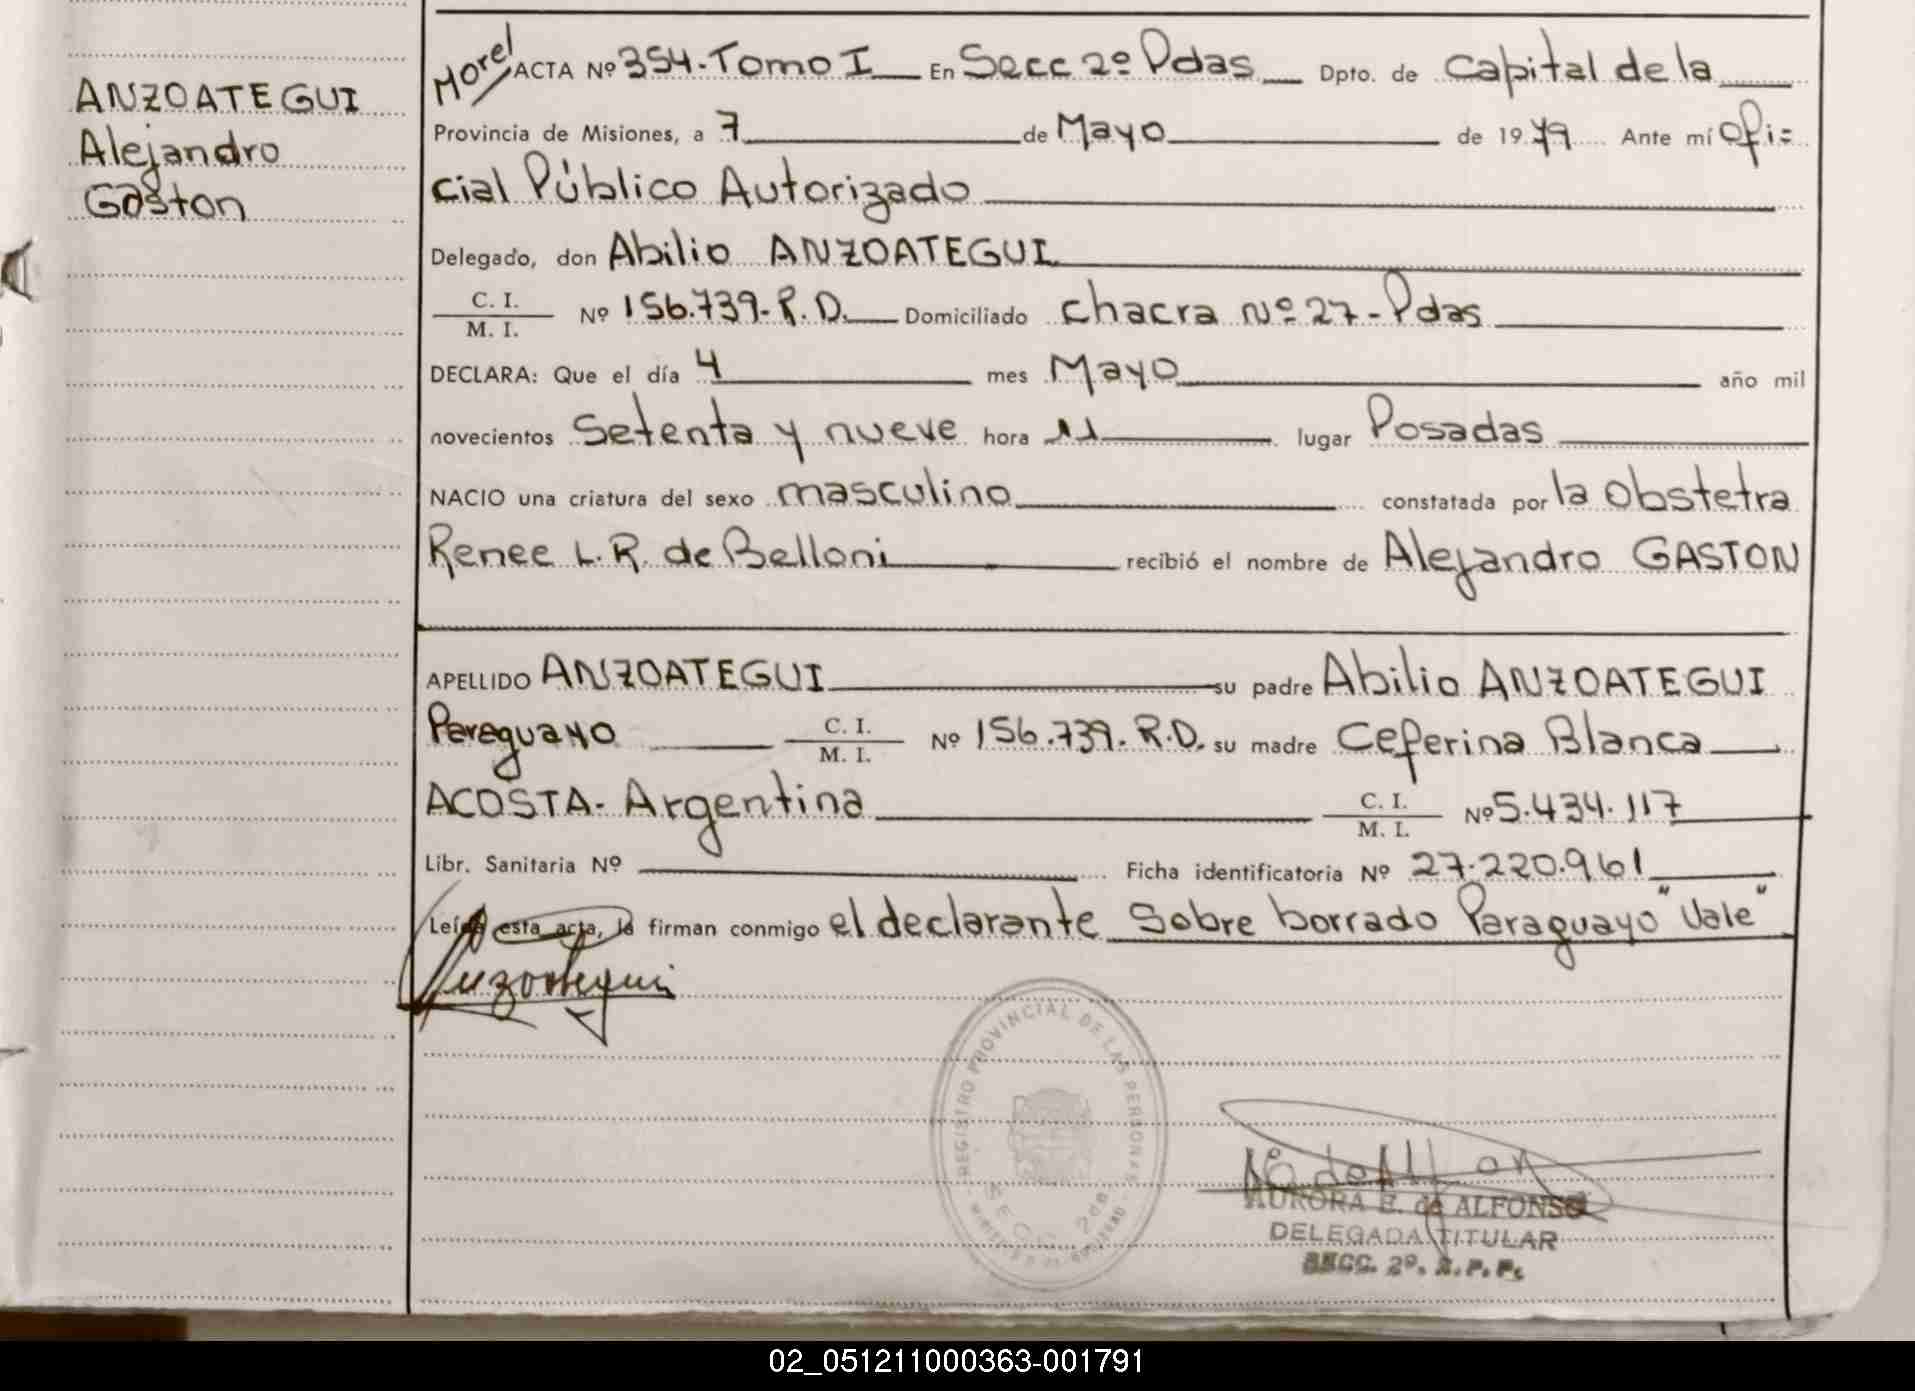 ANZOATEGUI
Alejandro
Gaston
Morel ACTA Nº 354. Tomo I En Secc 2º Pdas Dpto. de Capital de la
Provincia de Misiones, a 7 de Mayo de 1979 Ante mí Ofi=
cial Público Autorizado
Delegado, don Abilio ANZOATEGUI
C. I.
M. I. Nº 156.739-R.D. Domiciliado chacra Nº 27-Pdas
DECLARA: Que el día 4 mes Mayo año mil
novecientos setenta y nueve hora 11 lugar Posadas
NACIO una criatura del sexo masculino constatada por la Obstetra
Renee L.R. de Belloni recibió el nombre de Alejandro GASTON
APELLIDO ANZOATEGUI su padre Abilio ANZOATEGUI
Paraguayo C. I. M. I. Nº 156.739.R.D. su madre Ceferina Blanca
ACOSTA- Argentina C. I. M. I. Nº 5.434.117
Libr. Sanitaria Nº Ficha identificatoria Nº 27.220.961
Leída esta acta, la firman conmigo el declarante Sobre borrado Paraguayo "Vale"
Anzoategui
REGISTRO PROVINCIAL DE LAS PERSONAS
SECC. 2da
AURORA E. de ALFONSO
DELEGADA TITULAR
SECC. 2º. R. P. P.
02_051211000363-001791